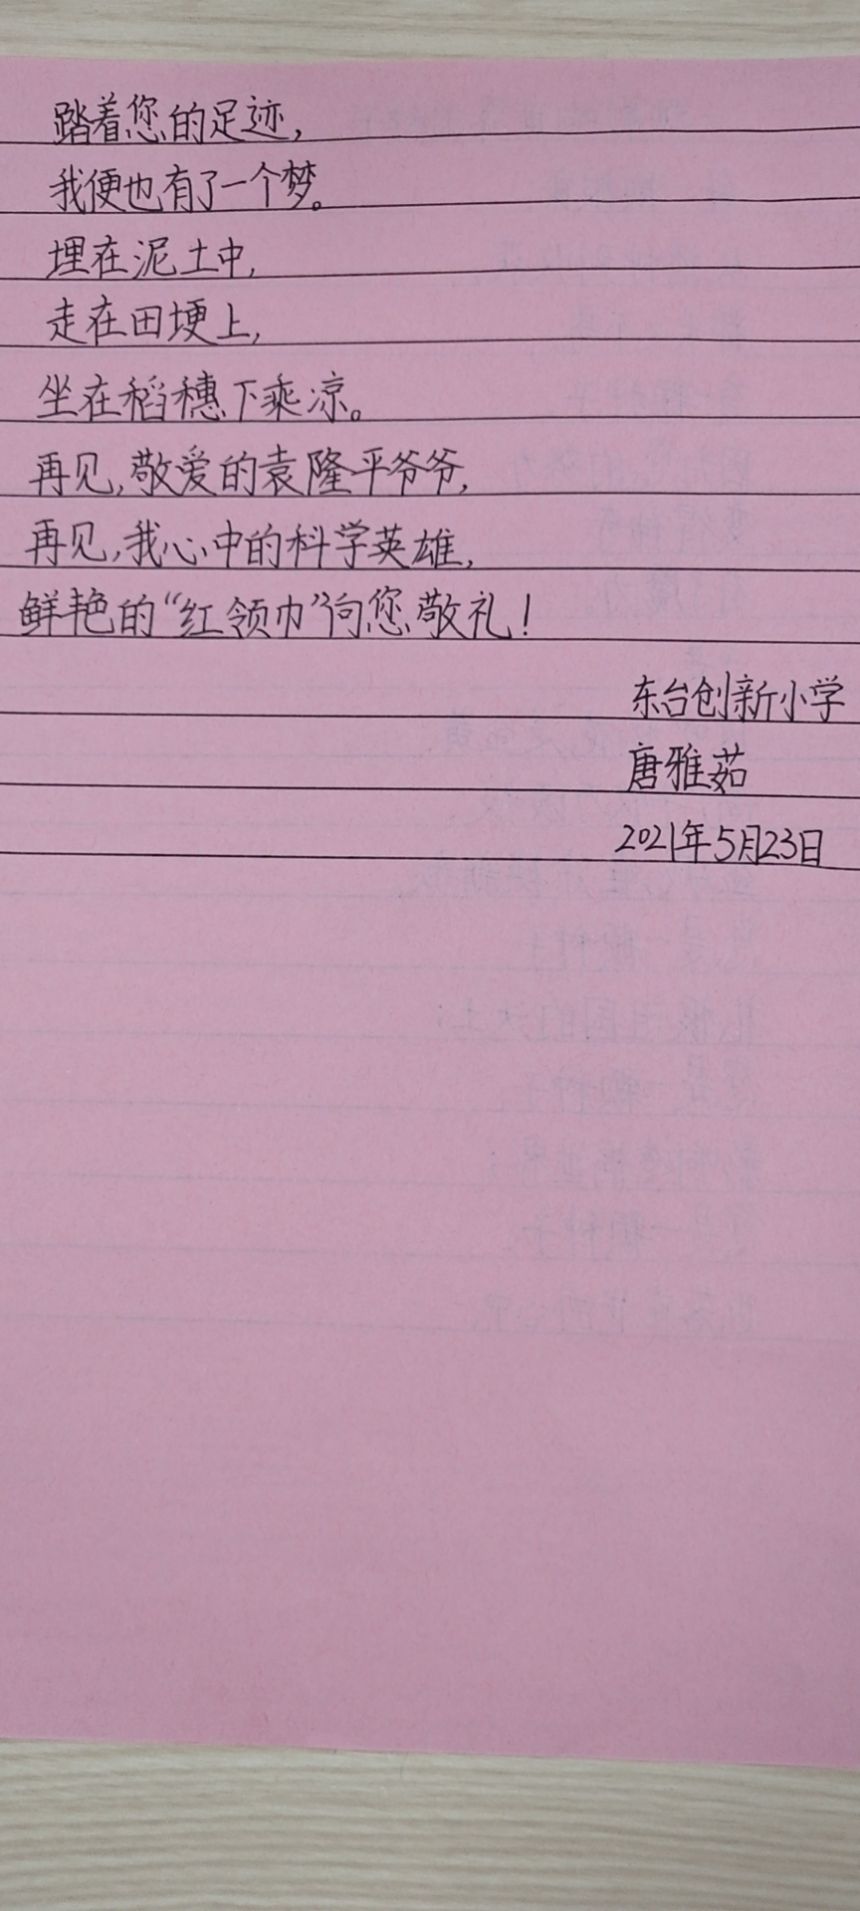 踏着您的足迹，
我便也有了一个梦。
埋在泥土中，
走在田埂上，
坐在稻穗下乘凉。
再见，敬爱的袁隆平爷爷，
再见，我心中的科学英雄，
鲜艳的“红领巾”向您敬礼！
东台创新小学
唐雅茹
2021年5月23日